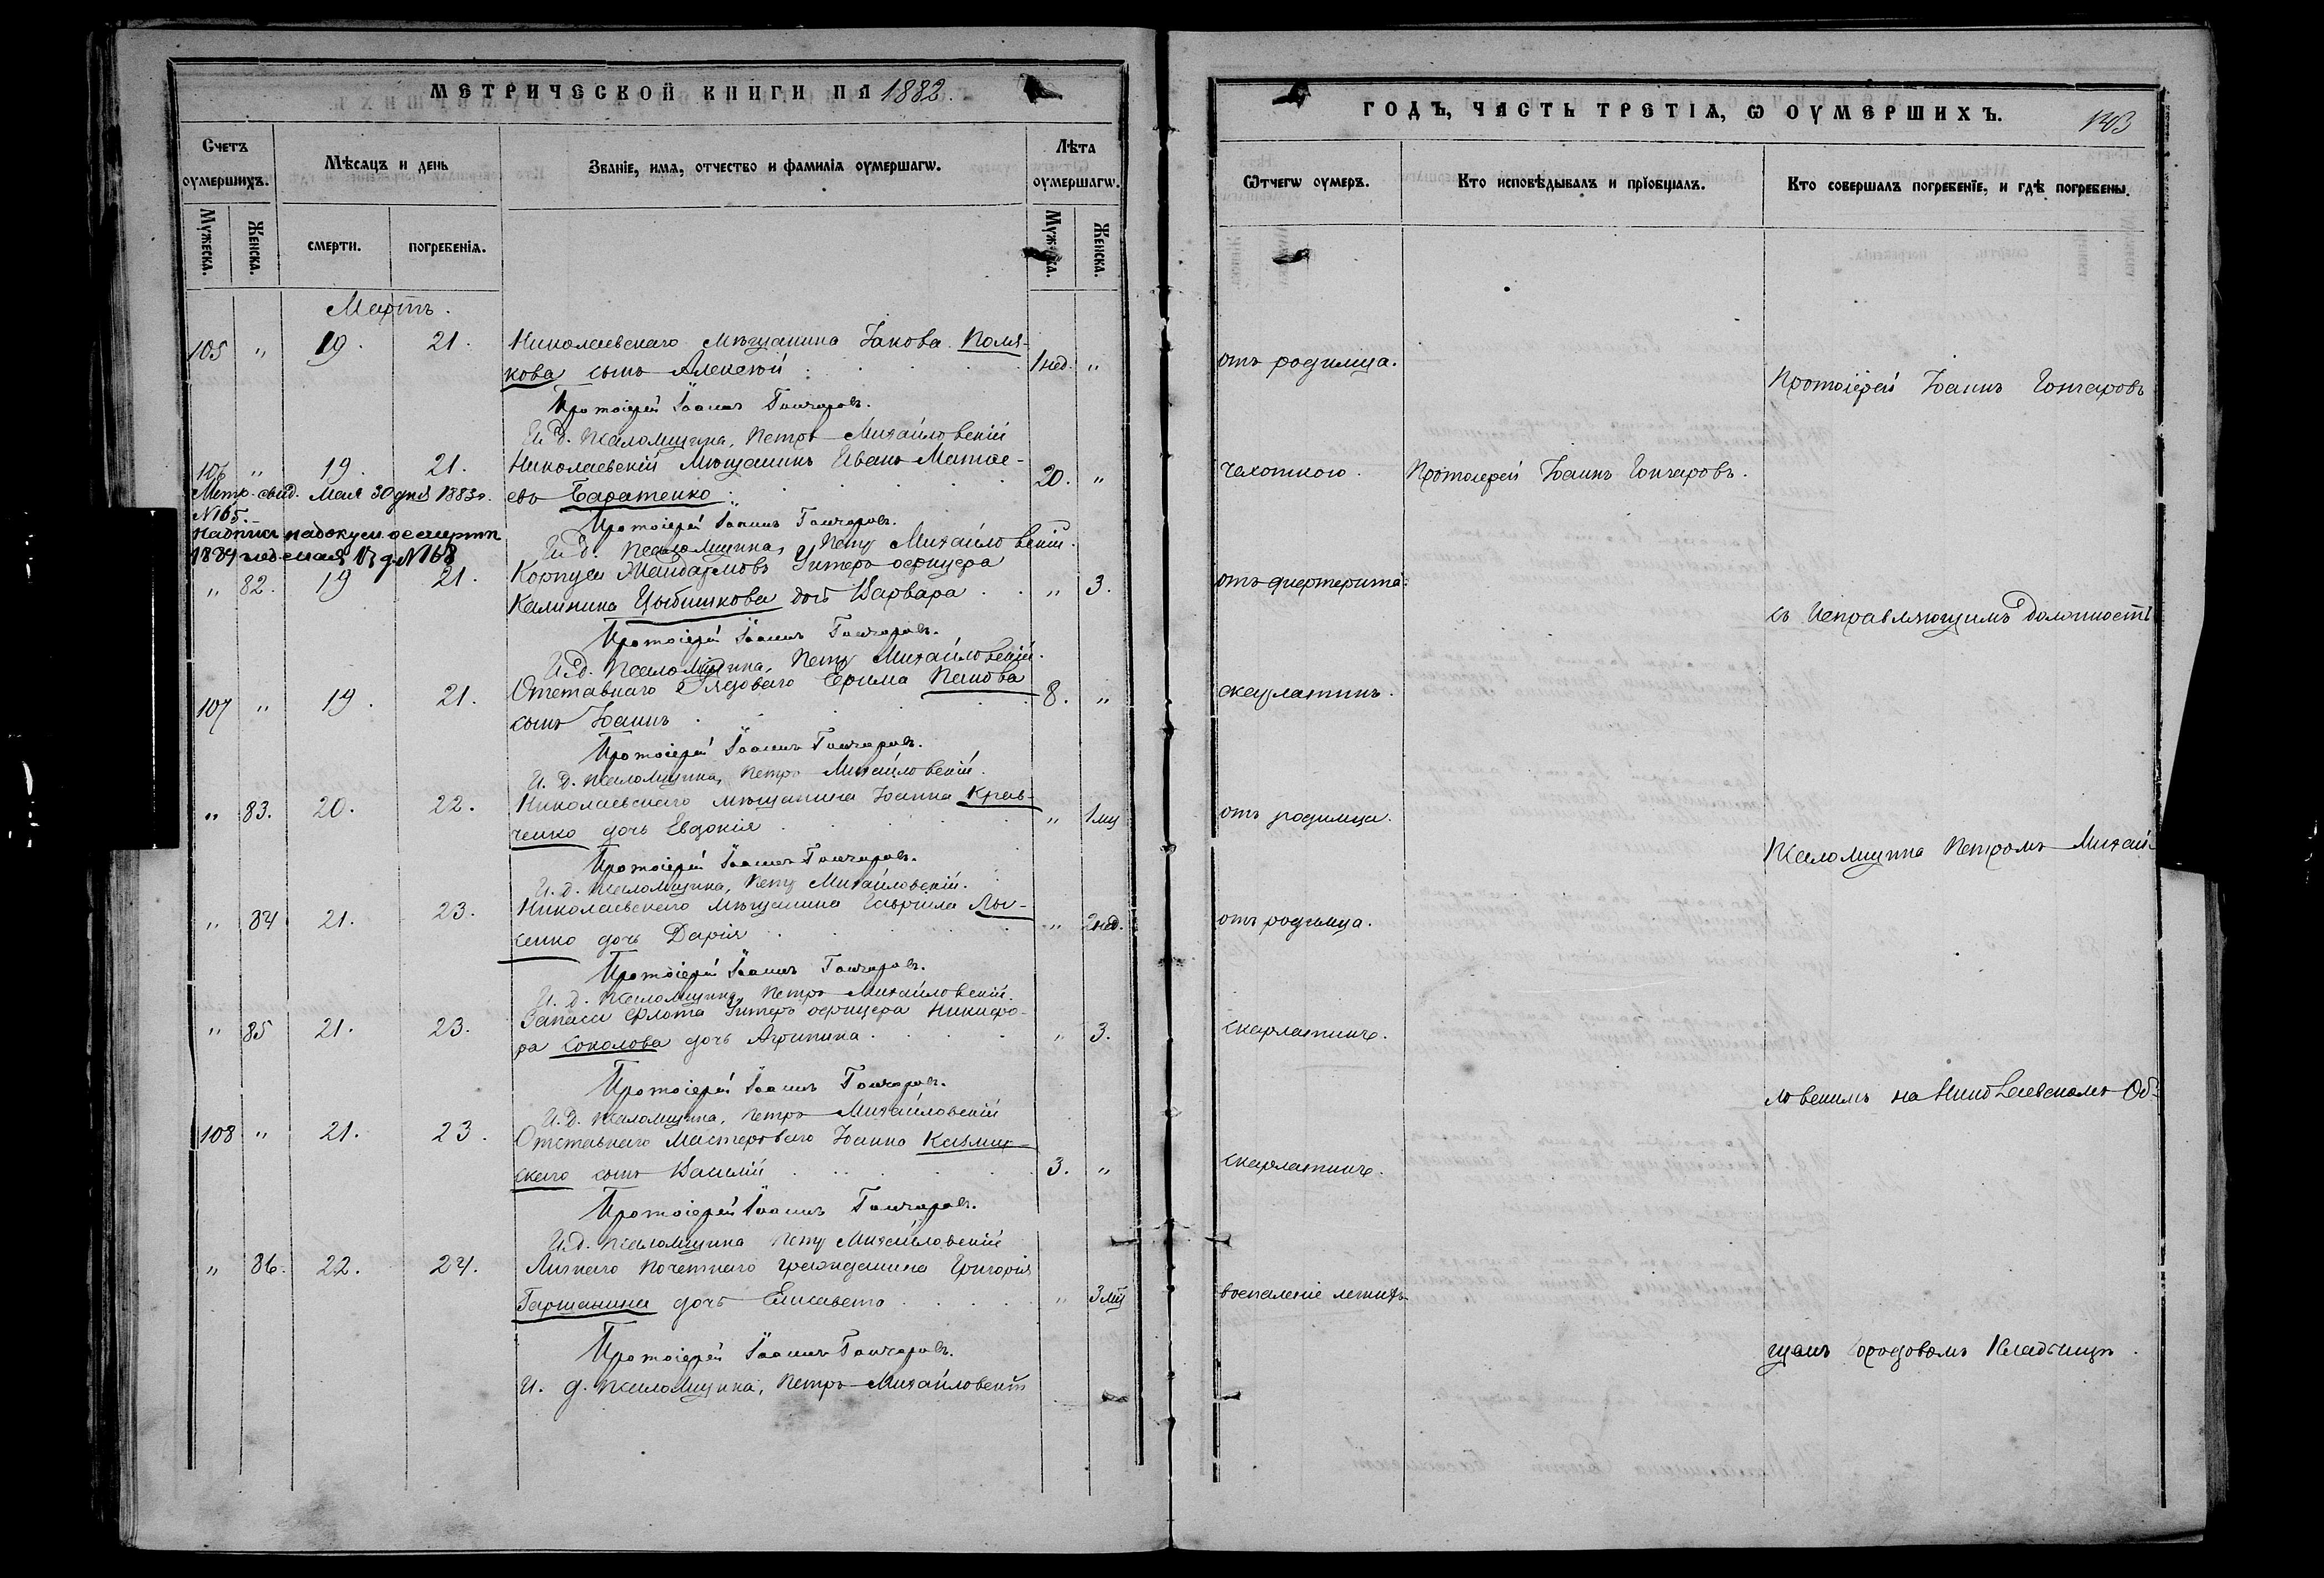 МЕТРИЧЕСКОЙ КНИГИ НА 1882.
Счетъ оумершихъ.
Мѣсяцъ и день
Званіе, имѧ, отчество и фамиліѧ оумершагѡ.
Лѣта оумершагѡ.
Мужеска.
Женска.
смерти.
погребеніѧ.
Мужеска.
Женска.
Мартъ.
105 " 19. 21. Николаевскаго мѣщанина Іакова Поля-
кова сынъ Алексѣй 1 нед. "
Протоіерей Іоаннъ Гончаровъ.
И. д. псаломщика, Петръ Михайловскій
106 " 19. 21. Николаевскій Мѣщанинъ Иванъ Матѳе-
евъ Баратенко 20. "
Метр. свид. Мая 30 дня 1883 г.
N 165.
Протоіерей Іоаннъ Гончаровъ.
И. д. псаломщика, Петръ Михайловскій.
" 82. 19 21. Корпуса Жандармовъ Унтеръ офицера
Калинина Цыбишкова дочь Варвара " 3.
Протоіерей Іоаннъ Гончаровъ.
И. д. псаломщика, Петръ Михайловскій.
107 " 19. 21. Отставнаго Рядоваго Ефима Панова
сынъ Іоаннъ 8. "
Протоіерей Іоаннъ Гончаровъ.
И. д. псаломщика, Петръ Михайловскій.
" 83. 20. 22. Николаевскаго мѣщанина Іоанна Крав-
ченко дочь Евдокія " 1 мц
Протоіерей Іоаннъ Гончаровъ.
И. д. псаломщика, Петръ Михайловскій.
" 84 21. 23. Николаевскаго мѣщанина Гавріила Лы-
сенко дочь Дарія " 2 нед.
Протоіерей Іоаннъ Гончаровъ.
И. д. псаломщика, Петръ Михайловскій.
" 85 21. 23. Запаса флота Унтеръ офицера Никифо-
ра Соколова дочь Агрипина " 3.
Протоіерей Іоаннъ Гончаровъ.
И. д. псаломщика, Петръ Михайловскій
108 " 21. 23. Отставнаго Мастероваго Іоанна Казмир-
скаго сынъ Василій 3. "
Протоіерей Іоаннъ Гончаровъ.
И. д. псаломщика Петръ Михайловскій
" 86. 22. 24. Личнаго почетнаго гражданина Григорія
Гаршанина дочь Елисавета " 3 мц
Протоіерей Іоаннъ Гончаровъ.
И. д. псаломщика, Петръ Михайловскій
ГОДЪ, ЧАСТЬ ТРЕТІѦ, Ѡ ОУМЕРШИХЪ.
143
Ѿчегѡ оумеръ.
Кто исповѣдывалъ и прїобщалъ.
Кто совершалъ погребенїе, и гдѣ погребены.
отъ родимца.
Протоіерей Іоаннъ Гончаровъ
чахоткою. Протоіерей Іоаннъ Гончаровъ.
отъ дифтерита.
съ Исправляющимъ должность
скарлатинъ.
отъ родимца.
Псаломщика Петромъ Михай-
отъ родимца.
скарлатинѣ.
ловскимъ на Николаевскомъ Об-
скарлатинѣ.
воспаленіе легкихъ
щемъ городовомъ Кладбищѣ.